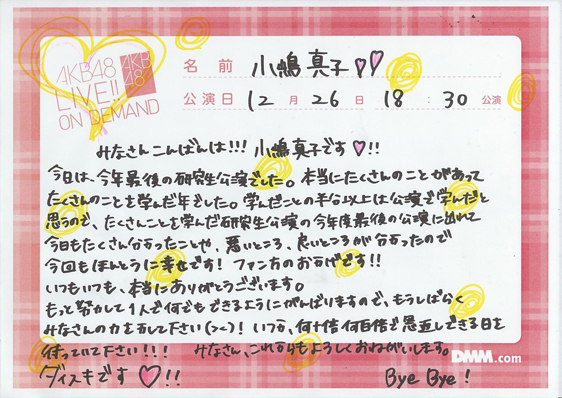 AKB48
LIVE!!
ON DEMAND
AKB
48
名前 小嶋真子
公演日 12月26日 18:30 公演
みなさんこんばんは!!! 小嶋真子です♡!!
今日は、今年最後の研究生公演でした。本当にたくさんのことがあって
たくさんのことを学んだ年でした。学んだことの半分以上は公演で学んだと
思うので、たくさんことを学んだ研究生公演の今年度最後の公演に出れて
今日もたくさん分かったことや、悪いところ、良いところが分かったので
今回もほんとうに幸せです! ファン方のおかげです!!
いつもいつも、本当にありがとうございます。
もっと努力して1人で何でもできるようにがんばりますので、もうしばらく
みなさんの力をかして下さい(><)! いつか、何十倍何百倍で恩返しできる日を
待っていて下さい!!! みなさん、これからもよろしくおねがいします。
ダイスキです♡!! Bye Bye!
DMM.com